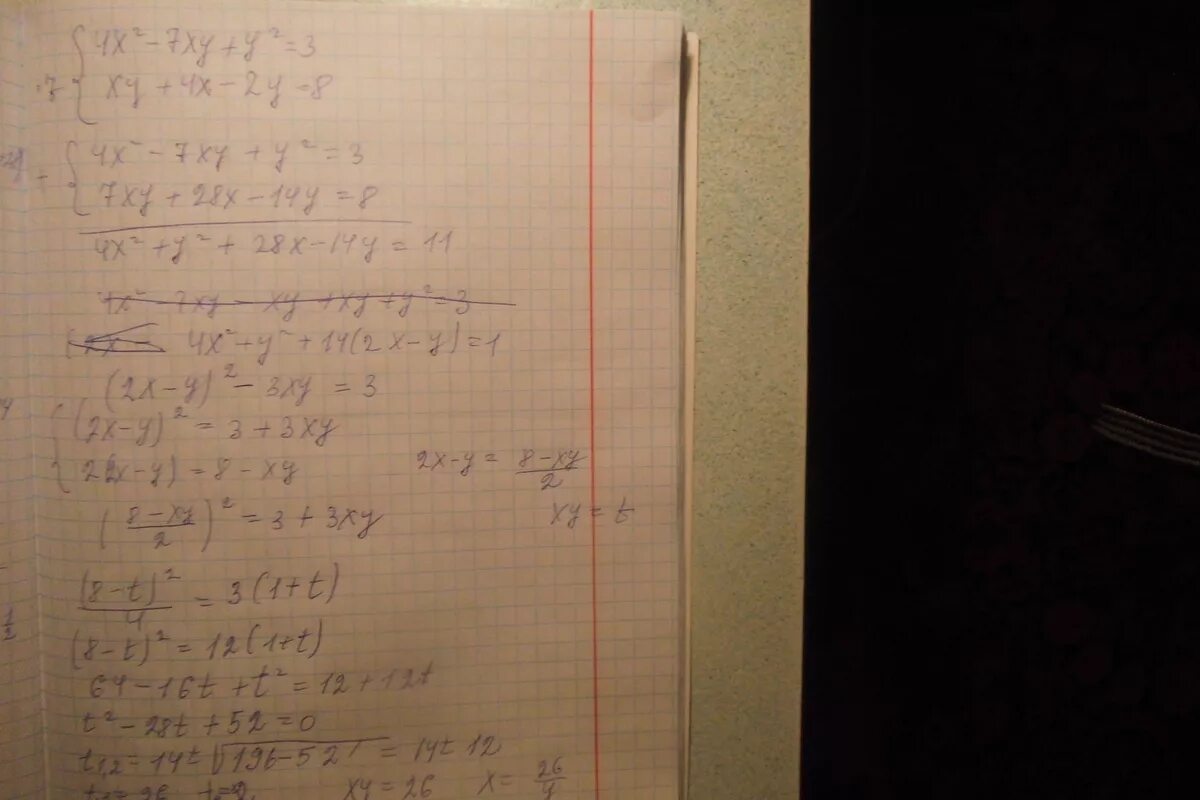 4x² - 7xy + y² = 3
·7 xy + 4x - 2y = 8
4x² - 7xy + y² = 3
+ 7xy + 28x - 14y = 8
4x² + y² + 28x - 14y = 11
4x² - 7xy - xy + xy + y² = 3
4x² + y² + 14(2x - y) = 1
(2x - y)² - 3xy = 3
(2x - y)² = 3 + 3xy
2(2x - y) = 8 - xy 2x - y = (8 - xy)/2
((8 - xy)/2)² = 3 + 3xy xy = t
(8 - t)²/4 = 3(1 + t)
(8 - t)² = 12(1 + t)
64 - 16t + t² = 12 + 12t
t² - 28t + 52 = 0
t1,2 = 14 ± √196 - 52 = 14 ± 12
t1 = 26 t = 2 xy = 26 x = 26/y